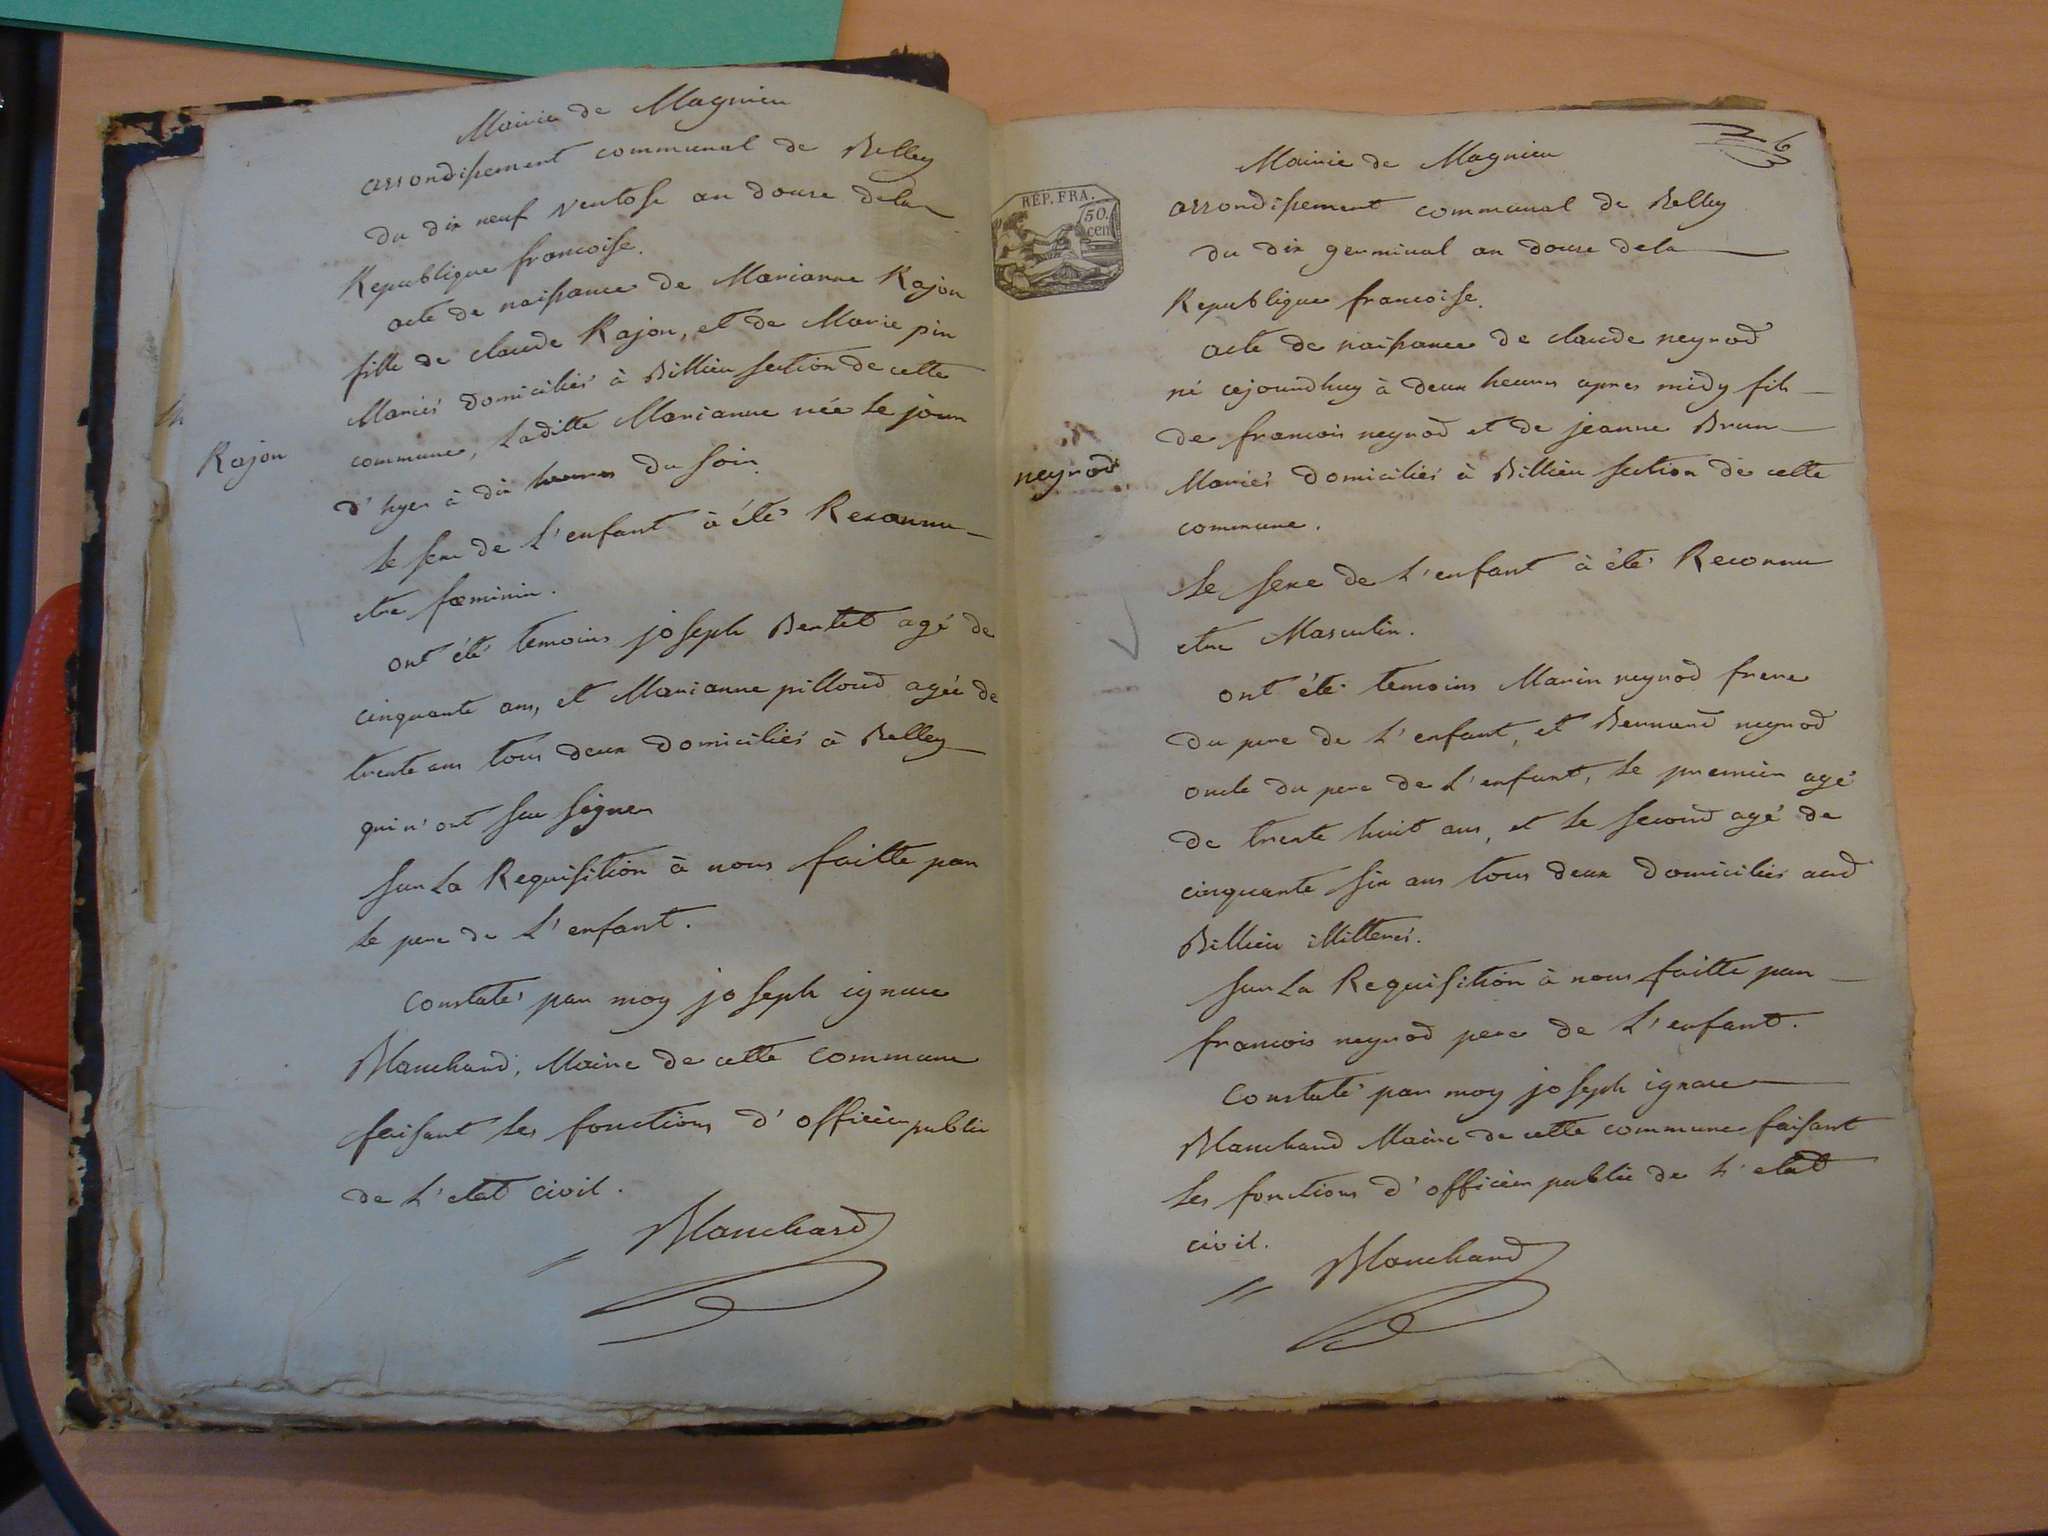 Mairie de Magnieu
arrondissement communal de Belley
du dix neuf ventose an douze dela
Republique francoise.
acte de naissance de Marianne Rajon
fille de claude Rajon, et de Marie pin
Mariés domiciliés à Billieu section de cette
commune, Laditte Marianne née le jour
d'hyer à dix heures du soir.
Rajon
le sexe de L'enfant à été Reconnu
etre fœminin.
ont été temoins joseph Bertet agé de
cinquante ans, et Marianne pilloud agée de
trente ans tous deux domiciliés à Belley
qui n'ont scu signer
sur La Requisition à nous faitte par
le pere de L'enfant.
Constaté par moy joseph ignace
Blanchard, Maire de cette commune
faisant les fonctions d'officier public
de L'etat civil.
Blanchard
6
RÉP. FRA.
50.
cen
Mairie de Magnieu
arrondissement communal de Belley
du dix germinal an douze dela
Republique francoise.
acte de naissance de claude neyrod
né cejourdhuy à deux heures apres midy fils
de francois neyrod et de jeanne Brun
Mariés domiciliés à Billieu section de cette
commune.
neyrod
le sexe de L'enfant à été Reconnu
etre Masculin.
ont été temoins Marin neyrod frere
du pere de L'enfant, et Bernard neyrod
oncle du pere de L'enfant, le premier agé
de trente huit ans, et le second agé de
cinquante six ans tous deux domiciliés aud
Billieu illitterés.
sur La Requisition à nous faitte par
francois neyrod pere de L'enfant.
Constaté par moy joseph ignace
Blanchard Maire de cette commune faisant
les fonctions d'officier public de L'etat
civil.
Blanchard